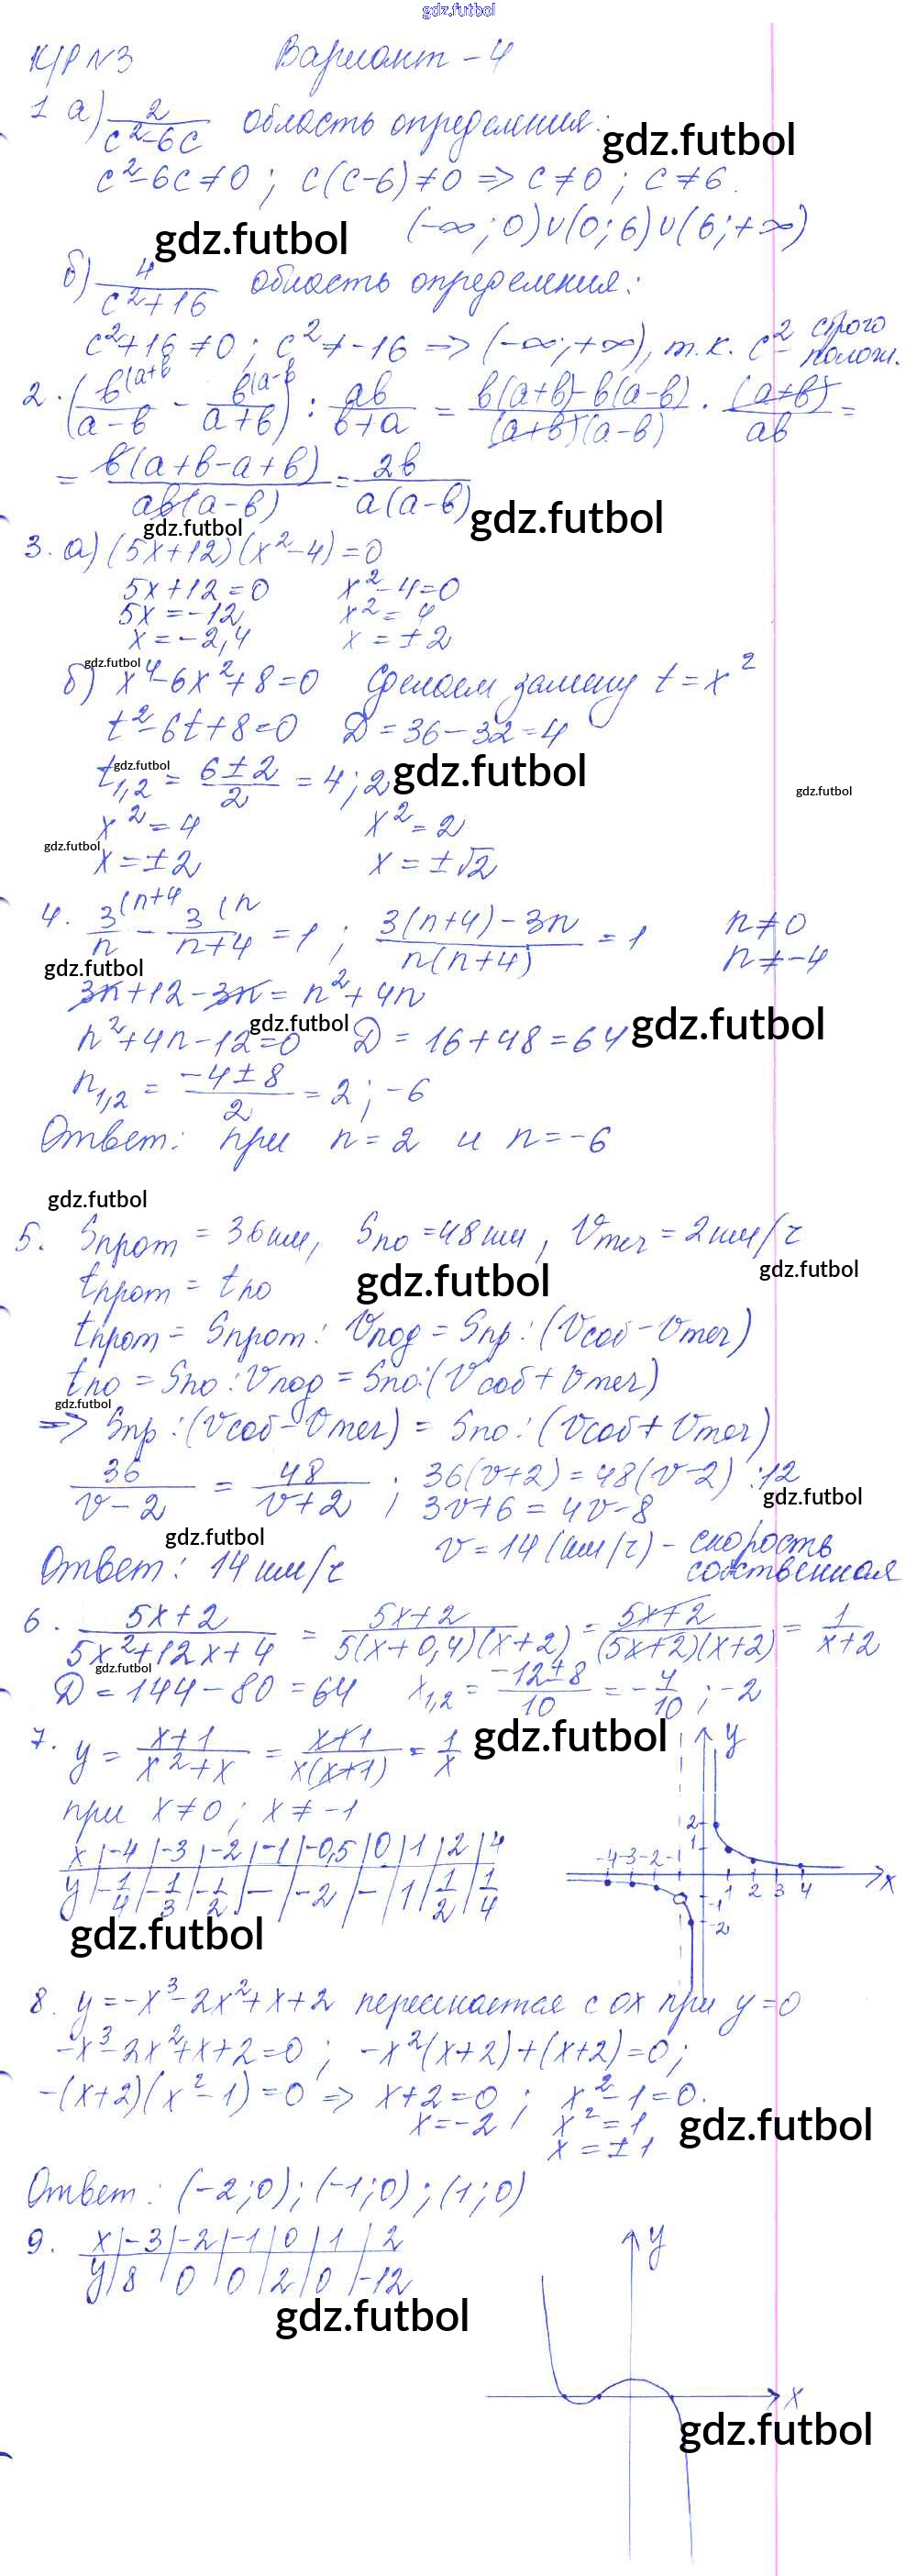 gdz.futbol
К/Р №3 Вариант – 4
1 а) 2/(c²-6c) область определения:
gdz.futbol
c²-6c≠0 ; c(c-6)≠0 => c≠0 ; c≠6.
(-∞;0)∪(0;6)∪(6;+∞)
gdz.futbol
б) 4/(c²+16) область определения:
c²+16≠0 ; c²≠-16 => (-∞;+∞), т.к. c² – строго полож.
2. (b(a+b/(a-b) - b(a-b/(a+b)) : ab/(b+a) = (b(a+b)-b(a-b))/((a+b)(a-b)) · (a+b)/ab =
= b(a+b-a+b)/(ab(a-b)) = 2b/(a(a-b))
gdz.futbol
gdz.futbol
3. а) (5x+12)(x²-4)=0
5x+12=0 x²-4=0
5x=-12 x²=4
x=-2,4 x=±2
gdz.futbol
б) x⁴-6x²+8=0 Сделаем замену t=x²
t²-6t+8=0 D=36-32=4
gdz.futbol
t1,2 = (6±2)/2 = 4;2
gdz.futbol
gdz.futbol
x²=4 x²=2
gdz.futbol
x=±2 x=±√2
4. 3(n+4/n - 3(n/(n+4) = 1 ; (3(n+4)-3n)/(n(n+4)) = 1 n≠0
n≠-4
gdz.futbol
3n+12-3n=n²+4n
gdz.futbol
gdz.futbol
n²+4n-12=0 D=16+48=64
n1,2 = (-4±8)/2 = 2 ; -6
Ответ: при n=2 и n=-6
gdz.futbol
5. Sпрот = 36км, Sпо=48км, Vтеч = 2км/ч
gdz.futbol
gdz.futbol
tпрот = tпо
tпрот = Sпрот : Vлод = Sпр : (Vсоб-Vтеч)
tпо = Sпо : Vлод = Sпо:(Vсоб+Vтеч)
gdz.futbol
=> Sпр : (Vсоб-Vтеч) = Sпо : (Vсоб+Vтеч)
36/(v-2) = 48/(v+2) ; 36(v+2)=48(v-2) :12
3v+6=4v-8
gdz.futbol
gdz.futbol
v=14(км/ч) – скорость собственная
Ответ: 14км/ч
6. (5x+2)/(5x²+12x+4) = (5x+2)/(5(x+0,4)(x+2)) = (5x+2)/((5x+2)(x+2)) = 1/(x+2)
gdz.futbol
D=144-80=64 x1,2 = (-12±8)/10 = -4/10 ; -2
7. y = (x+1)/(x²+x) = (x+1)/(x(x+1)) = 1/x
gdz.futbol
y
при x≠0 ; x≠-1
x | -4 | -3 | -2 | -1 | -0,5 | 0 | 1 | 2 | 4
y | -1/4 | -1/3 | -1/2 | – | -2 | – | 1 | 1/2 | 1/4
2
1
-4 -3 -2 -1
1 2 3 4 x
-1
-2
gdz.futbol
8. y=-x³-2x²+x+2 пересекается с OX при y=0
-x³-2x²+x+2=0 ; -x²(x+2)+(x+2)=0;
-(x+2)(x²-1)=0 => x+2=0 ; x²-1=0.
x=-2 ; x²=1
gdz.futbol
x=±1
Ответ: (-2;0);(-1;0);(1;0)
9. x | -3 | -2 | -1 | 0 | 1 | 2
y | 8 | 0 | 0 | 2 | 0 | -12
y
gdz.futbol
x
gdz.futbol